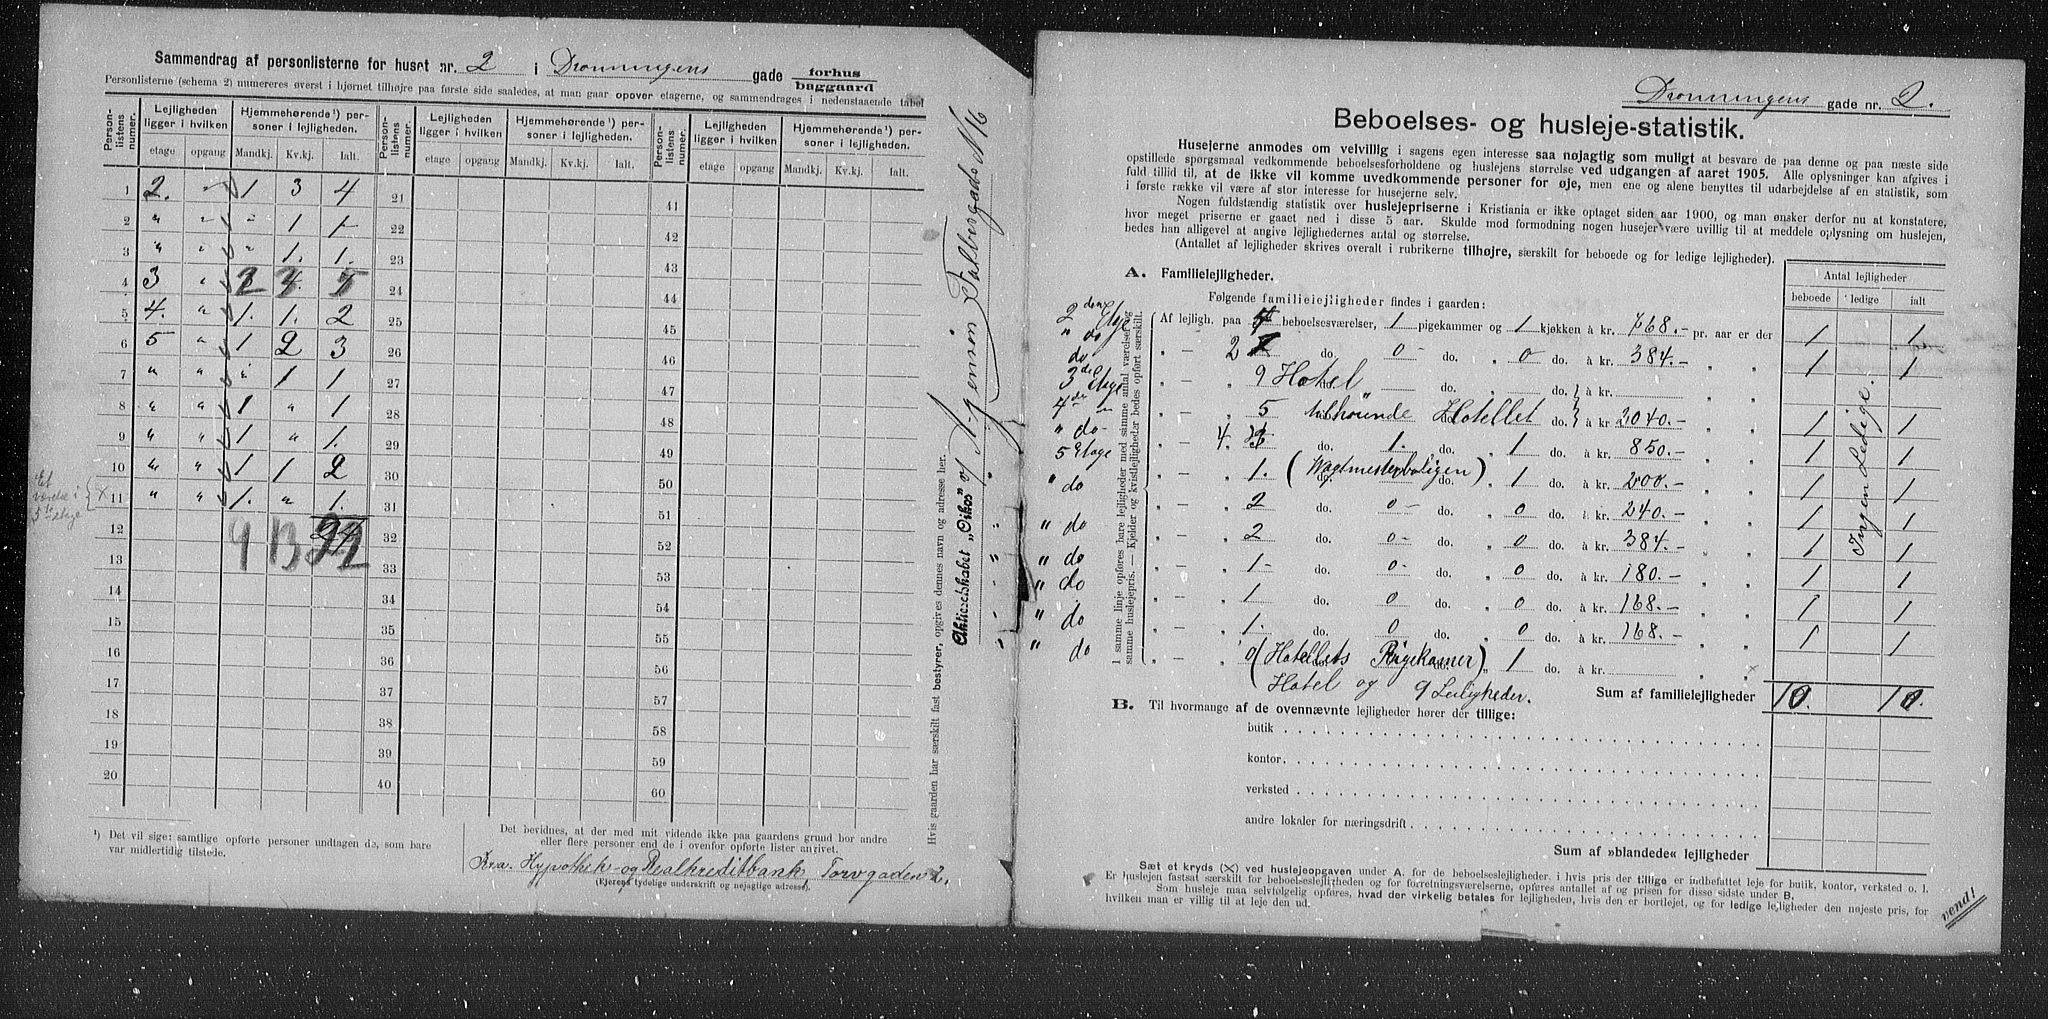 Sammendrag af personlisterne for huset nr. 2 i Dronningens gade forhus baggaard
Personlisterne (schema 2) numereres øverst i hjørnet tilhøjre paa første side saaledes, at man gaar opover etagerne, og sammendrages i nedenstaaende tabel
Personlistens numer. Lejligheden ligger i hvilken Hjemmehørende ¹) personer i lejligheden. Personlistens numer. Lejligheden ligger i hvilken Hjemmehørende ¹) personer i lejligheden. Personlistens numer. Lejligheden ligger i hvilken Hjemmehørende ¹) personer i lejligheden.
etage opgang Mandkj. Kv.kj. Ialt. etage opgang Mandkj. Kv.kj. Ialt. etage opgang Mandkj. Kv.kj. Ialt.
1 2. " 1 3 4 21 41
2 " " " 1 1 22 42
3 " " " 1. 1. 23 43
4 3 " 24 44
5 4. " 1. 1. 2 25 45
6 5 " 1 2 3 26 46
7 " " " 1 1 27 47
8 " " 1 " 1 28 48
9 " " 1 " 1. 29 49
10 " " 1 1 2 30 50
Et værelse i 5te etage X 11 " " 1. " 1. 31 51
12 9 13 22 32 52
13 33 53
14 34 54
15 35 55
16 36 56
17 37 57
18 38 58
19 39 59
20 40 60
¹) Det vil sige: samtlige opførte personer undtagen de, som bare
var midlertidig tilstede.
Det bevidnes, at der med mit vidende ikke paa gaardens grund bor andre
eller flere personer end de i ovenfor opførte lister anrivet.
Kra. Hypothek- og Realkreditbank, Torvgaden 2.
(Kjerens tydelige underskrift og nøjagtige adresse)
Hvis gaarden har særskilt fast bestyrer, opgives dennes navn og adresse her.
Aktieselskabet „Oikos" v/ A. Jensen Falbesgade N 16
Dronningens gade nr. 2.
Beboelses- og husleje-statistik.
Husejerne anmodes om velvillig i sagens egen interesse saa nøjagtig som muligt at besvare de paa denne og paa næste side
opstillede spørgsmaal vedkommende beboelsesforholdene og huslejens størrelse ved udgangen af aaret 1905. Alle oplysninger kan afgives i
fuld tillid til, at de ikke vil komme uvedkommende personer for øje, men ene og alene benyttes til udarbejdelse af en statistik, som
i første række vil være af stor interesse for husejerne selv.
Nogen fuldstændig statistik over huslejepriserne i Kristiania er ikke optaget siden aar 1900, og man ønsker derfor nu at konstatere,
hvor meget priserne er gaaet ned i disse 5 aar. Skulde mod formodning nogen husejer være uvillig til at meddele oplysning om huslejen,
bedes han alligevel at angive lejlighedernes antal og størrelse.
(Antallet af lejligheder skrives overalt i rubrikerne tilhøjre, særskilt for beboede og for ledige lejligheder).
A. Familielejligheder.
Antal lejligheder
beboede ledige ialt
Følgende familielejligheder findes i gaarden:
I samme linje opføres bare lejligheder med samme antal værelser og samme huslejepris. — Kjelder og kvistlejligheder bedes opført særskilt.
2den Etage Af lejligh. paa 4 beboelsesværelser, 1 pigekammer og 1 kjøkken à kr. 768.- pr. aar er der 1 1
" do " — 2 do. 0 - do. " 0 do. à kr. 384.- " " 1 1
do " — 9 Hotel do. do. à kr. " "
3de Etage " — 5 tilhörende Hotellet do. à kr. 2040.- " " 1 1
4de — " — 4. do. 1. do. " 1 do. à kr. 850.- " " 1 1
" do - " — 1. (Vagtmesterboligen) do. 1 do. à kr. 200.- " " 1 1
5 Etage " — 2 do. 0 - do. " 0 do. à kr. 240.- " " 1 1
" do " — 2 do. 0 - do. " 0 do. à kr. 384.- " " 1 1
" do " — 1 - do. 0 - do. " 0 do. à kr. 180.- " " 1 1
" do " — 1 do. 0 do. " 0 do. à kr. 168.- " " 1 1
" do " — 1. do. 0 do. " 0 do. à kr. 168.- " " 1 1
" do " — (Hotellets Pigekamer) " 1 do. à kr. " "
" do
Ingen Ledige.
Hotel og 9 Leiligheder. Sum af familielejligheder 10. 10.
B. Til hvormange af de ovennævnte lejligheder hører der tillige:
butik
kontor
verksted
andre lokaler for næringsdrift
Sum af »blandede« lejligheder
Sæt et kryds (X) ved huslejeopgaven under A. for de beboelseslejligheder. i hvis pris der tillige er indbefattet leje for butik, kontor, verksted o. l.
Er huslejen fastsat særskilt for beboelseslejligheden og for forretningsværelserne, opføres antallet af og prisen for disse sidste under B.
Som husleje maa selvfølgelig opføres, hvad der virkelig betales for lejligheden, hvis den er bortlejet, og for ledige lejligheder den nøjeste pris, for
hvilken man er villig til at leje den ud.
vend!